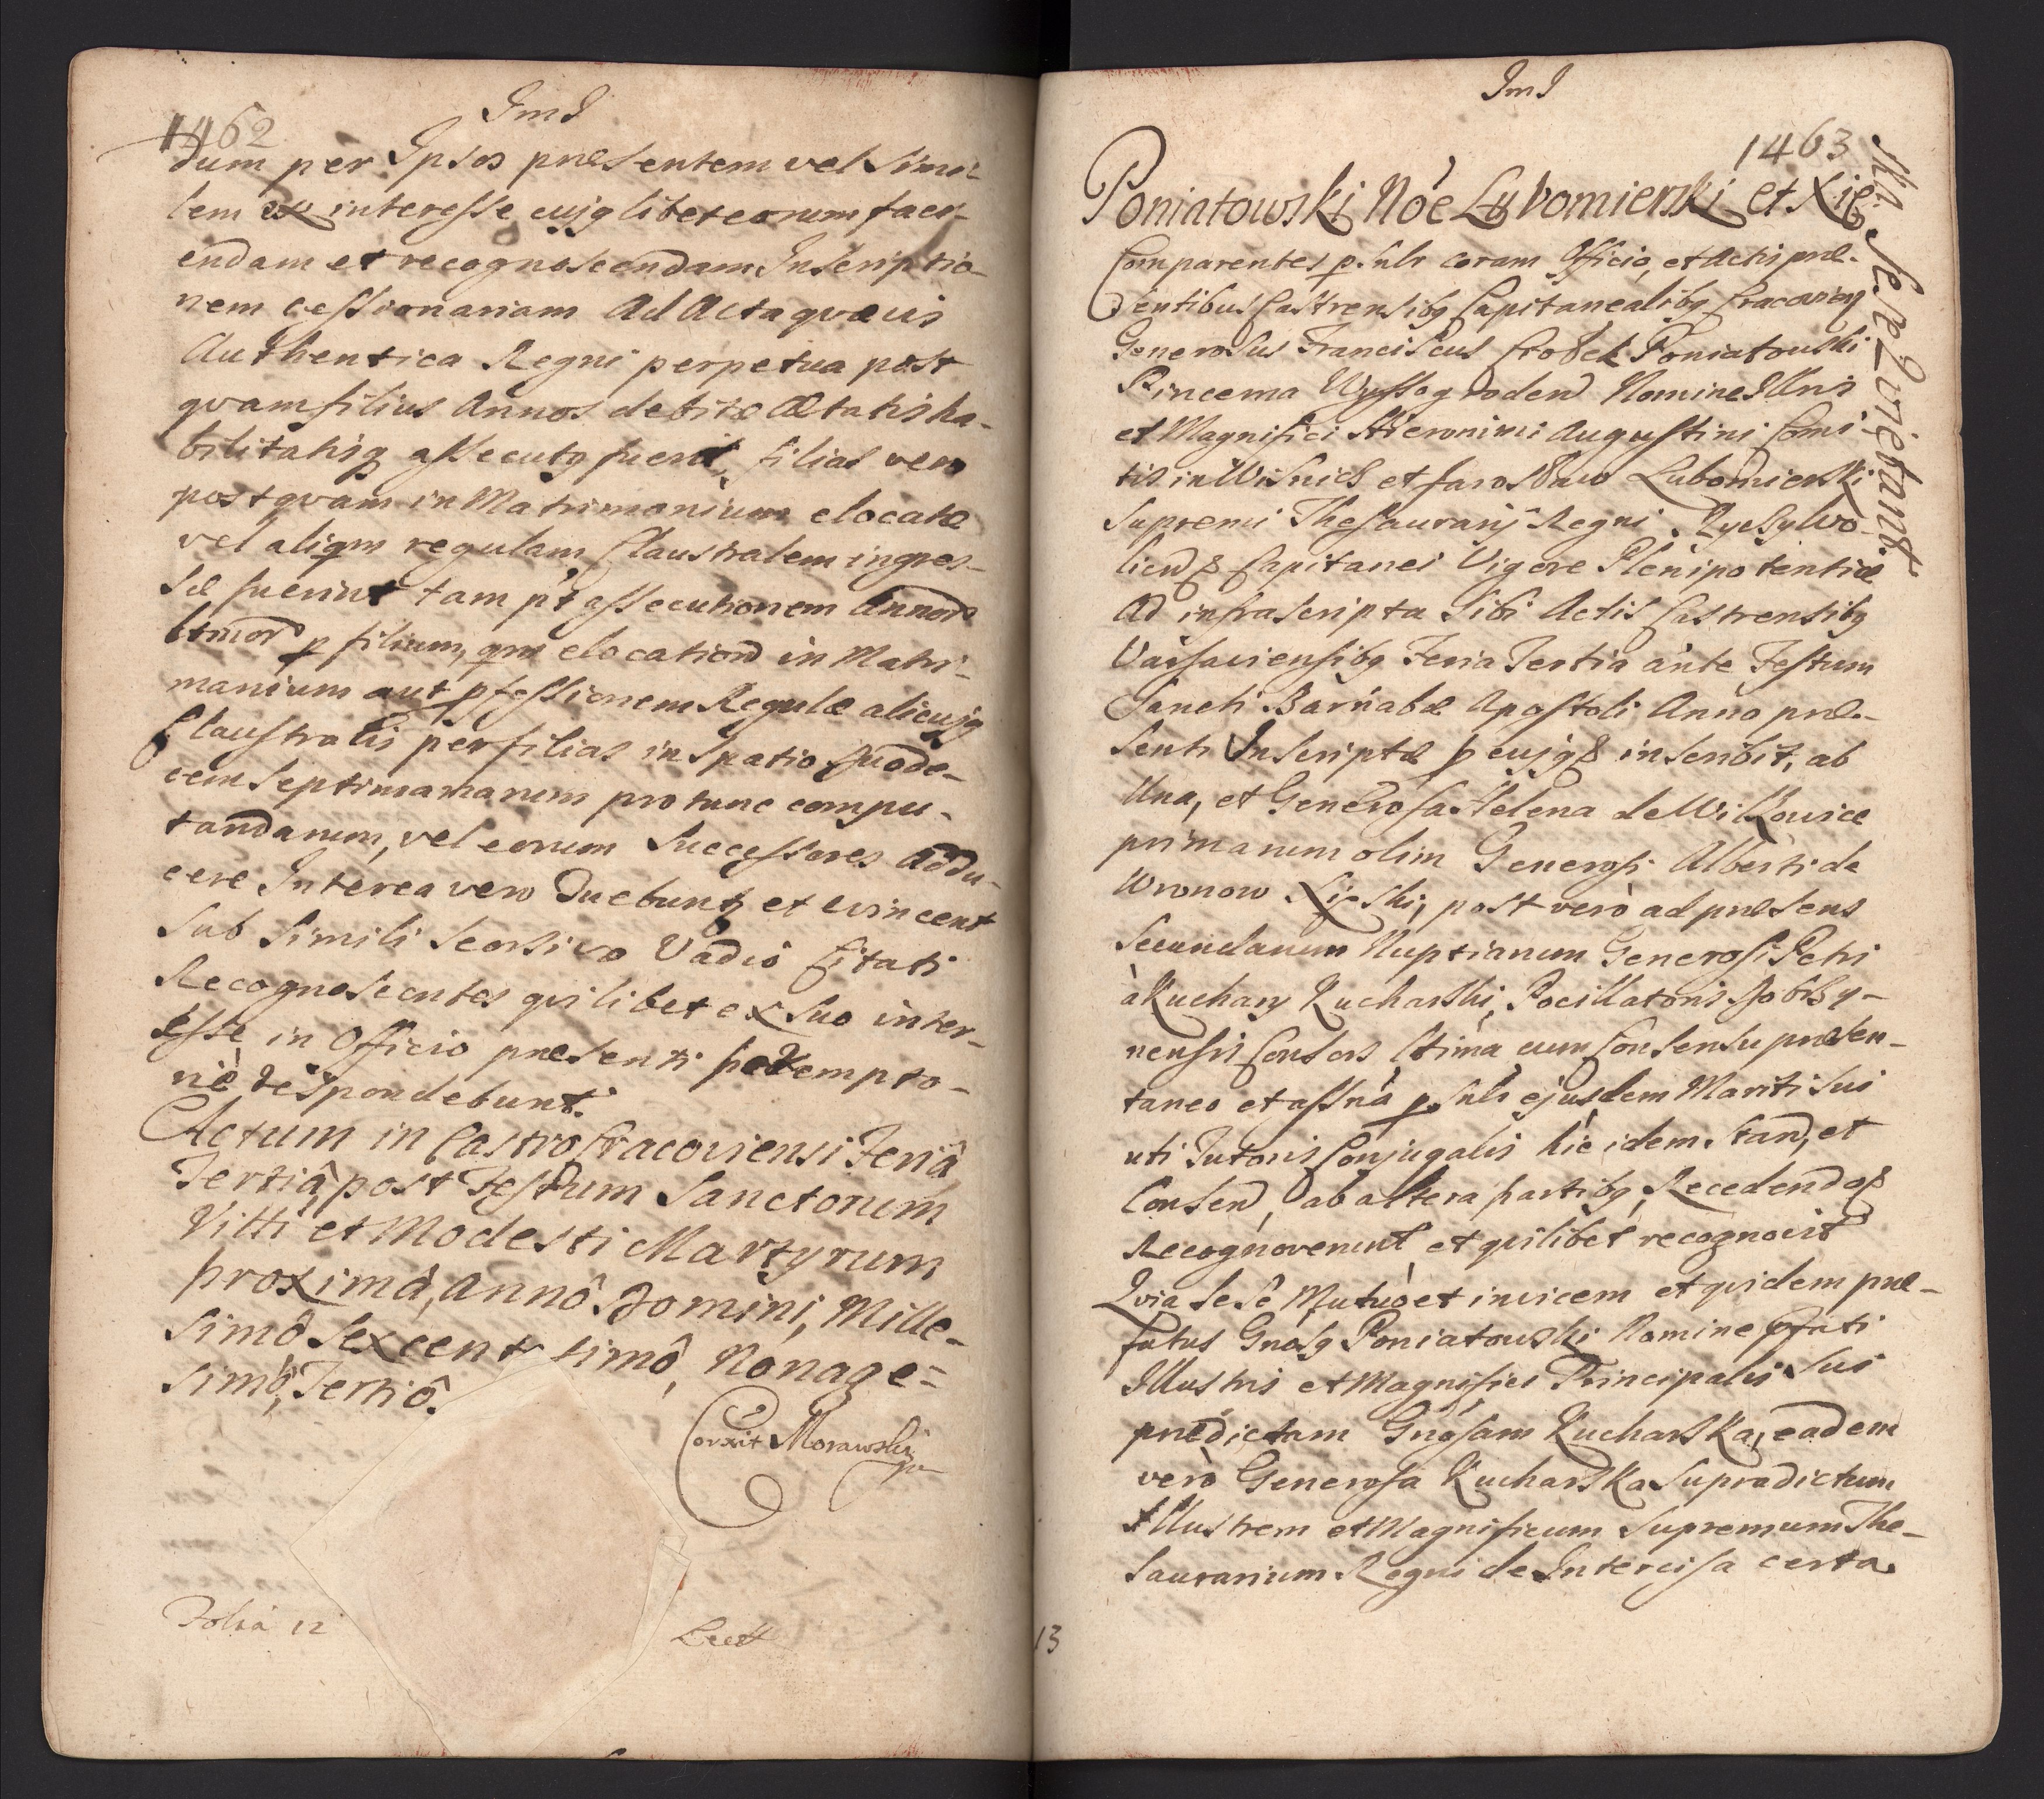 JmJ
1462
dum per Ipsos præsentem vel Simi-
lem ex interesse cujq libet eorum faci-
endam et recognoscendam Inscriptio-
nem cessionariam Ad Acta quævis
Authentica Regni perpetua post
quam filius Annos debitæ Ætatis ha-
bilitatisq assecutq fuerit, filiæ vero
postquam in Matrimonium elocatæ
vel aliqm regulam Claustralem ingres-
sæ fuerint tam pt assecutionem Annor
ltmor p filium, qm elocationem in Matri-
monium aut pfessionem Regulæ alicujq
Claustralis per filias in Spatio Duode-
cem Septimanarum pro tunc compu-
tandarum, vel eorum Successores Addu-
cere Interea vero Ducbunt et evincent
Sub Simili Seorsivo Vadio Citati
Recognoscentes quilibet ex Suo inter-
esse in Officio præsenti peremto-
riè respondebunt.
Actum in Castro Cracoviensi Feriâ
Tertiâ post Festum Sanctorum
Vitti et Modesti Martyrum
proximâ, Annô Domini, Mille-
simô Sexcentesimô, Nonage-
simô, Tertiô.
Corxit Morawski
Folia 12
Lect
JmJ
1463
Poniatowski Nöe Lubomierski et Xię
ska Sese Quietant
Comparentes p.snlr coram Officio, et Actis præ-
sentibus Castrensibq Capitanealibq Cracovien
Generosus Franciscus Ciołek Poniatowski
Pincerna Wyssogroden Nomine Illris
et Magnifici Hieronimi Augustini Comi-
tis in Wisnicz et Jarosław Lubomierski
Supremi Thesaurarij Regni Ryczywo-
lien & Capitanei Vigore Plenipotentiæ
Ad infrascripta Sibi Actis Castrensibq
Varsaviensibq Feria Tertia ante Festum
Sancti Barnabæ Apostoli Anno præ-
senti Inscriptæ p cujq inscribit, ab
Una, et Generosa Helena de Wilkowice
primarum olim Generosi Alberti de
Wronow Xięski, post verò ad præsens
Secundarum Nuptiarum Generosi Petri
à Kuchary Kucharski, Pocillatoris Dobrzy-
nensis Consors ltima cum Consensu præsen-
taneo et assna p.snlr ejusdem Mariti Sui
uti Tutoris Conjugalis hic idem Stan, et
Consen, ab altera partibq, Recedendo
Recognoverunt et quilibet recognovit
Quia Sese Mutuò et invicem et quidem præ-
fatus Gnosq Poniatowski Nomine pfati
Illustris et Magnifici Principalis Sui
prædictam Gnosam Kucharska, eadem
verò Generosa Kucharska Supradictum
Illustrem et Magnificum Supremum The-
saurarium Regni de Intercisa certa
13